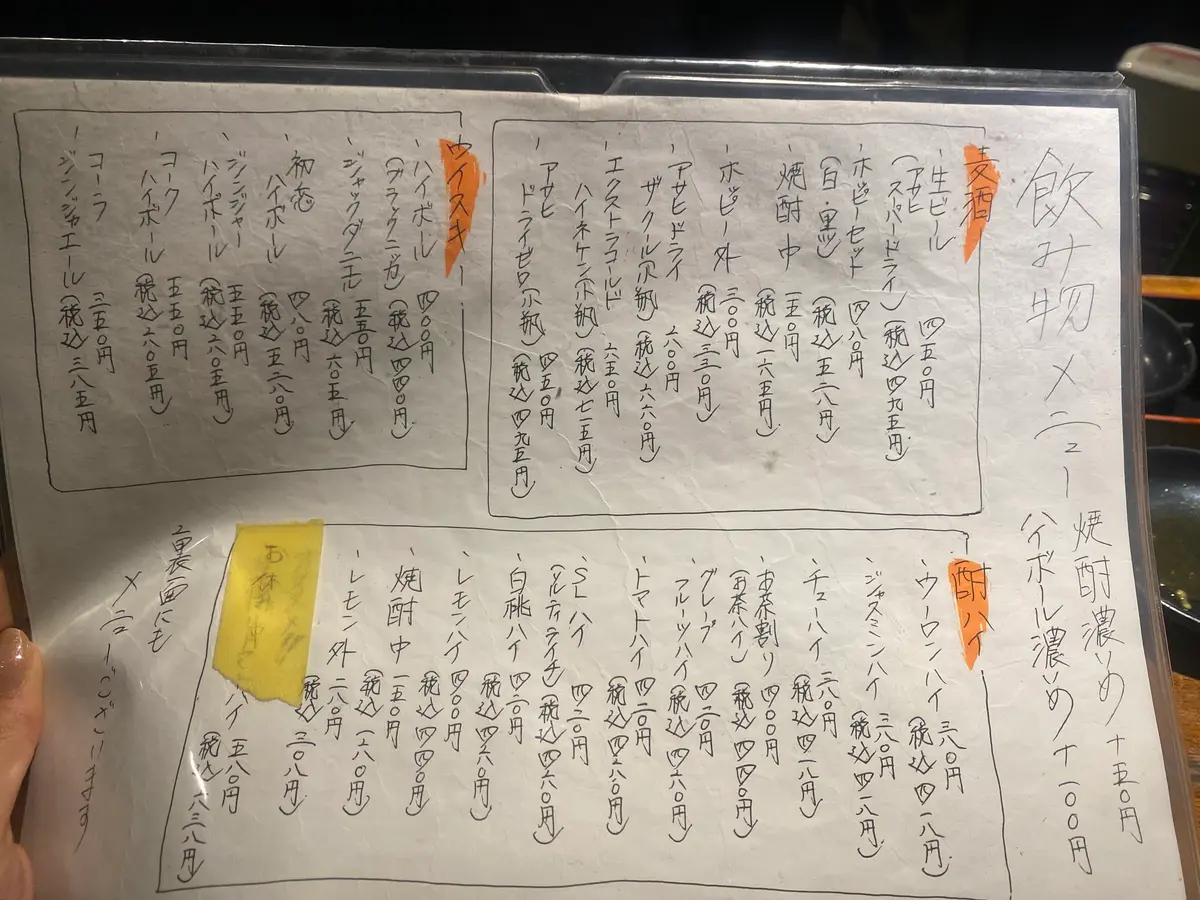 飲み物メニュー
焼酎濃いめ+五〇円
ハイボール濃いめ+一〇〇円
麦酒
、生ビール 四五〇円
(アサヒスーパードライ) (税込四九五円)
、ホッピーセット 四八〇円
(白・黒) (税込五二八円)
、焼酎中 一五〇円
(税込一六五円)
、ホッピー外 三〇〇円
(税込三三〇円)
、アサヒドライ 六〇〇円
ザクル(小瓶) (税込六六〇円)
、エクストラコールド 六五〇円
ハイネケン(小瓶) (税込七一五円)
、アサヒ 四五〇円
ドライゼロ(小瓶) (税込四九五円)
ウイスキー
、ハイボール 四〇〇円
(ブラックニッカ) (税込四四〇円)
、ジャックダニエル 五五〇円
(税込六〇五円)
、初恋 四八〇円
ハイボール (税込五二八円)
、ジンジャー 五五〇円
ハイボール (税込六〇五円)
、コーク 五五〇円
ハイボール (税込六〇五円)
、コーラ 三五〇円
ジンジャエール (税込三八五円)
酎ハイ
、ウーロンハイ 三八〇円
(税込四一八円)
、ジャスミンハイ 三八〇円
(税込四一八円)
、チューハイ 三八〇円
(税込四一八円)
、お茶割り 四〇〇円
(お茶ハイ) (税込四四〇円)
、グレープ 四二〇円
フルーツハイ (税込四六〇円)
、トマトハイ 四二〇円
(税込四六〇円)
、SLハイ 四二〇円
(税込四六〇円)
、白桃ハイ 四二〇円
(税込四六〇円)
、レモンハイ 四〇〇円
(税込四四〇円)
、焼酎中 一五〇円
(税込一六〇円)
、レモン外 二八〇円
(税込三〇八円)
お休み中です
ハイ 五八〇円
(税込六三八円)
裏面にも
メニューございます